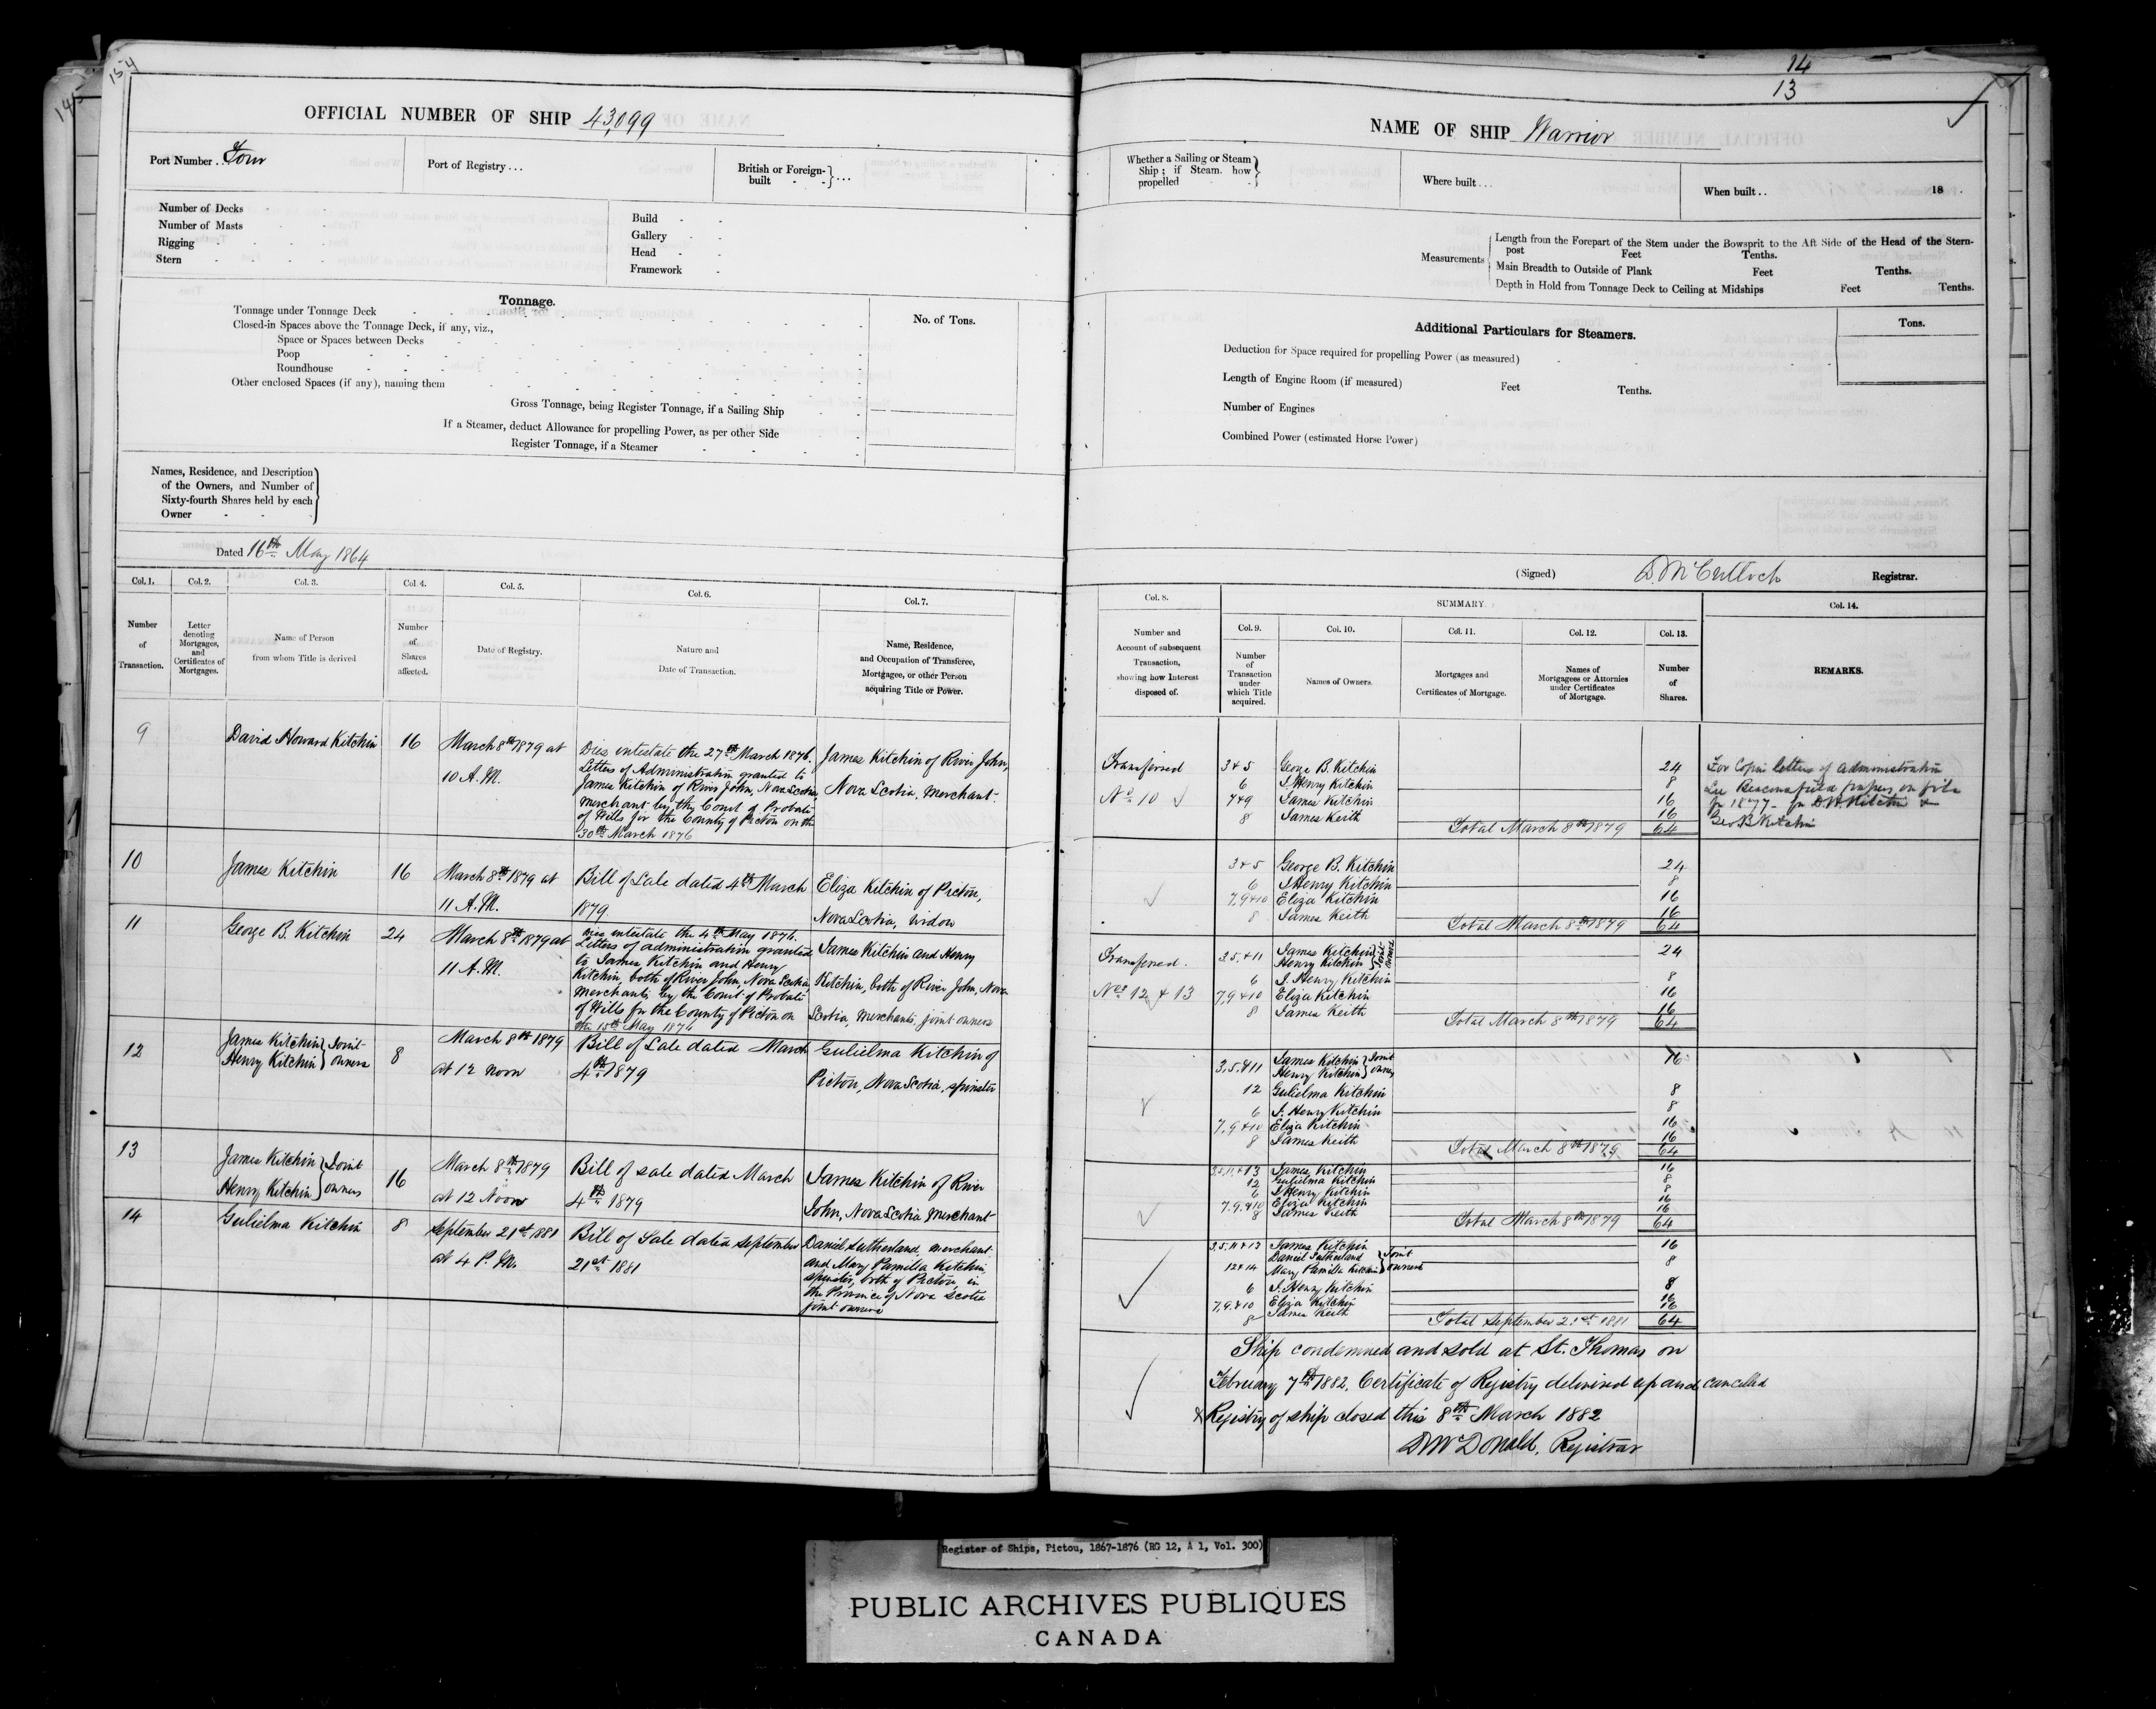 154
145
OFFICIAL NUMBER OF SHIP 43,099
Port Number . . Four
Port of Registry . . .
British or Foreign-
built - - } . . .
Number of Decks
Number of Masts
Rigging
Stern
Build
Gallery
Head
Framework
Tonnage.
No. of Tons.
Tonnage under Tonnage Deck
Closed-in Spaces above the Tonnage Deck, if any, viz.,
Space or Spaces between Decks
Poop
Roundhouse
Other enclosed Spaces (if any), naming them
Gross Tonnage, being Register Tonnage, if a Sailing Ship
If a Steamer, deduct Allowance for propelling Power, as per other Side
Register Tonnage, if a Steamer
Names, Residence, and Description
of the Owners, and Number of
Sixty-fourth Shares held by each
Owner
Dated 16th May 1864
Col. 1. Col. 2. Col. 3. Col. 4. Col. 5. Col. 6. Col. 7.
Number of Transaction.
Letter denoting Mortgages, and Certificates of Mortgages.
Name of Person from whom Title is derived
Number of Shares affected.
Date of Registry.
Nature and Date of Transaction.
Name, Residence, and Occupation of Transferee, Mortgagee, or other Person acquiring Title or Power.
9
David Howard Kitchin
16
March 8th 1879 at
10 A.M.
Dies intestate the 27th March 1876.
Letters of Administration granted to
James Kitchin of River John, Nova Scotia,
merchant by the Court of Probate
of Wills for the County of Pictou on the
30th March 1876
James Kitchin of River John,
Nova Scotia, Merchant.
10
James Kitchin
16
March 8th 1879 at
11 A.M.
Bill of Sale dated 4th March
1879.
Eliza Kitchin of Pictou,
Nova Scotia, widow
11
George B. Kitchin
24
March 8th 1879 at
11 A.M.
Dies intestate the 4th May 1876.
Letters of administration granted
to James Kitchin and Henry
Kitchin, both of River John, Nova Scotia
Merchants by the Court of Probate
of Wills for the County of Pictou on
the 15th May 1876
James Kitchin and Henry
Kitchin, both of River John, Nova
Scotia, Merchants, joint owners
12
James Kitchin } Joint
Henry Kitchin } owners
8
March 8th 1879
at 12 noon
Bill of Sale dated March
4th 1879
Gulielma Kitchin of
Pictou, Nova Scotia, spinster
13
James Kitchin } Joint
Henry Kitchin } owners
16
March 8th 1879
at 12 Noon
Bill of sale dated March
4th 1879
James Kitchin of River
John, Nova Scotia Merchant
14
Gulielma Kitchin
8
September 21st 1881
at 4 P.M.
Bill of Sale dated September
21st 1881
Daniel Sutherland, merchant
and Mary Pamilla Kitchin
spinster, both of Pictou, in
the Province of Nova Scotia
joint owners
14
13
NAME OF SHIP Warrior
Whether a Sailing or Steam
Ship; if Steam, how
propelled
Where built . . .
When built . . 18 .
Measurements
Length from the Forepart of the Stem under the Bowsprit to the Aft Side of the Head of the Stern-
post Feet Tenths.
Main Breadth to Outside of Plank Feet Tenths.
Depth in Hold from Tonnage Deck to Ceiling at Midships Feet Tenths.
Additional Particulars for Steamers.
Tons.
Deduction for Space required for propelling Power (as measured)
Length of Engine Room (if measured) Feet Tenths.
Number of Engines
Combined Power (estimated Horse Power)
(Signed) D. McCulloch Registrar.
Col. 8. SUMMARY. Col. 14.
Col. 9. Col. 10. Col. 11. Col. 12. Col. 13.
Number and Account of subsequent Transaction, showing how Interest disposed of.
Number of Transaction under which Title acquired.
Names of Owners.
Mortgages and Certificates of Mortgage.
Names of Mortgagees or Attorneys under Certificates of Mortgage.
Number of Shares.
REMARKS.
Transferred
No 10
3 & 5 George B. Kitchin 24
6 J. Henry Kitchin 8
7 & 9 James Kitchin 16
8 James Keith 16
Total March 8th 1879 64
For Copies letters of administration
See Beaconsfield papers on file
for 1877 - for D H Kitchin &
Geo B Kitchin
3 & 5 George B. Kitchin 24
6 J Henry Kitchin 8
7, 9 & 10 Eliza Kitchin 16
8 James Keith 16
Total March 8th 1879 64
Transferred.
Nos 12 & 13
3.5. & 11 James Kitchin } Joint 24
Henry Kitchin } owners
6 J. Henry Kitchin 8
7, 9 & 10 Eliza Kitchin 16
8 James Keith 16
Total March 8th 1879 64
3.5. & 11 James Kitchin } Joint 16
Henry Kitchin } owners
12 Gulielma Kitchin 8
6 J. Henry Kitchin 8
7, 9 & 10 Eliza Kitchin 16
8 James Keith 16
Total March 8th 1879 64
3.5.11. & 13 James Kitchin 16
12 Gulielma Kitchin 8
6 J Henry Kitchin 8
7. 9. & 10 Eliza Kitchin 16
8 James Keith 16
Total March 8th 1879 64
3.5.11 & 13 James Kitchin 16
12 & 14 Daniel Sutherland } Joint 8
Mary Pamilla Kitchin } owners
6 J. Henry Kitchin 8
7. 9. & 10 Eliza Kitchin 16
8 James Keith 16
Total September 21st 1881 64
Ship condemned and sold at St. Thomas on
February 7th 1882, Certificate of Registry delivered up and cancelled
& Registry of ship closed this 8th March 1882
D McDonald, Registrar
Register of Ships, Pictou, 1867-1876 (RG 12, A 1, Vol. 300)
PUBLIC ARCHIVES PUBLIQUES
CANADA